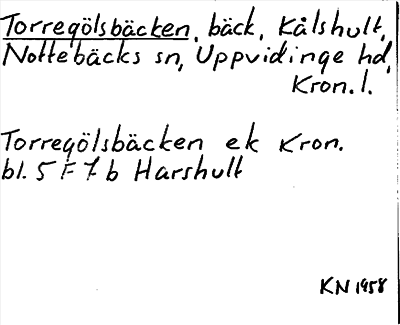 Torregölsbäcken, bäck, Kålshult,
Nottebäcks sn, Uppvidinge hd,
Kron. l.
Torregölsbäcken ek Kron.
bl. 5 F 7 b Harshult
KN 1958